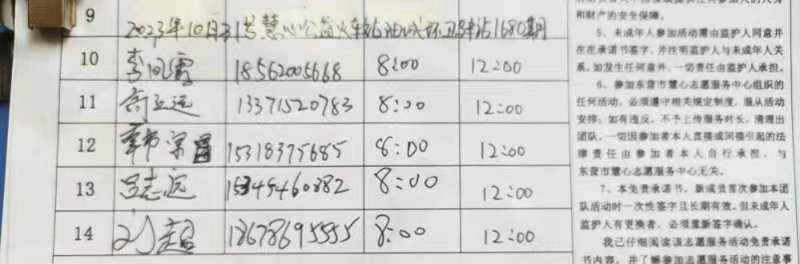 9
2023年10月31号慧心公益火车站
1680期
10 李 18562005668 8:00 12:00
11 高立远 13371520783 8:00 12:00
12 15318375685 8:00 12:00
13 吕志远 15345460382 8:00 12:00
14 刘超 18678695555 8:00 12:00
和财产的安全保障。
5、未成年人参加活动需由监护人同意并
在承诺书签字，并注明监护人与未成年人关
系，如发生任何意外，一切责任由监护人承担。
6、参加东营市慧心志愿服务中心组织的
任何活动，必须遵守相关规定制度，服从活动
安排；如有违反，不予上传服务时长，清理出
团队，一切因参加者本人直接或间接引起的法
律责任由参加者本人自行承担，与
东营市慧心志愿服务中心无关。
7、本免责承诺书，新成员首次参加本团
队活动时一次性签字且长期有效，但未成年人
监护人有更换者，必须重新签字确认。
我已仔细阅读该志愿服务活动免责承诺
书内容，并了解参加志愿服务活动的注意事